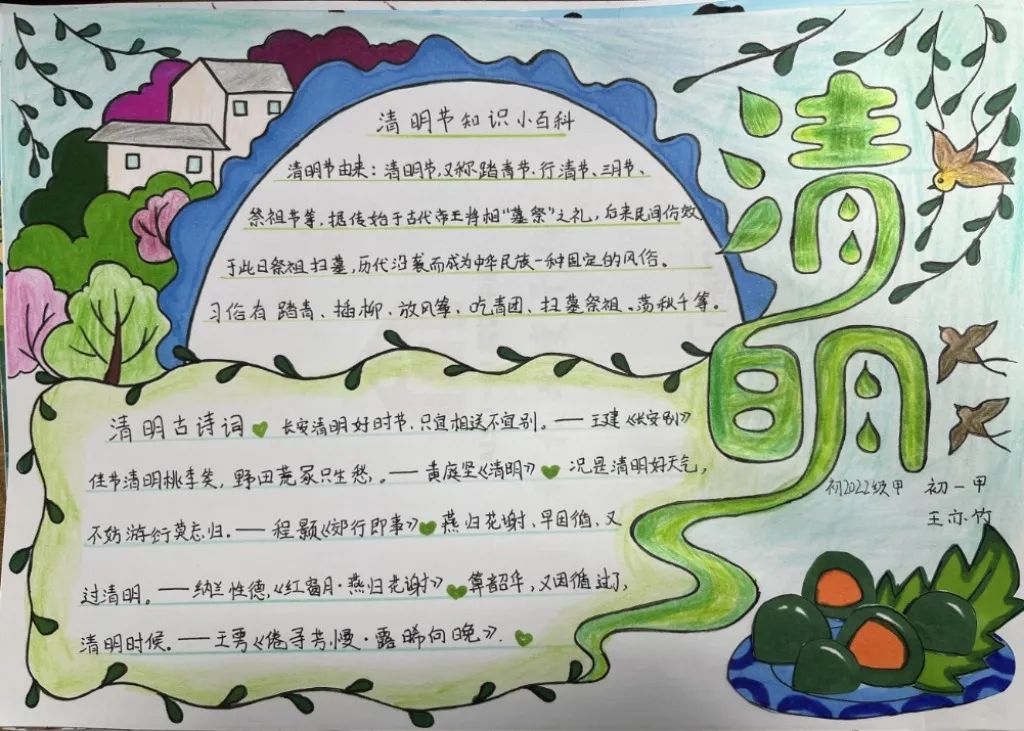 清明节知识小百科
清明节由来:清明节,又称踏青节、行清节、三月节、
祭祖节等,据传始于古代帝王将相“墓祭”之礼,后来民间仿效,
于此日祭祖扫墓,历代沿袭而成为中华民族一种固定的风俗。
习俗有踏青、插柳、放风筝、吃青团、扫墓祭祖、荡秋千等。
清明
清明古诗词 长安清明好时节,只宜相送不宜别。——王建《长安别》
佳节清明桃李笑,野田荒冢只生愁。——黄庭坚《清明》 况是清明好天气,
不妨游衍莫忘归。——程颢《郊行即事》 燕归花谢,早因循,又
过清明。——纳兰性德,《红窗月·燕归花谢》 算韶华,又因循过了,
清明时候。——王雱《倦寻芳慢·露晞向晚》.
初2022级甲 初一甲
王亦竹